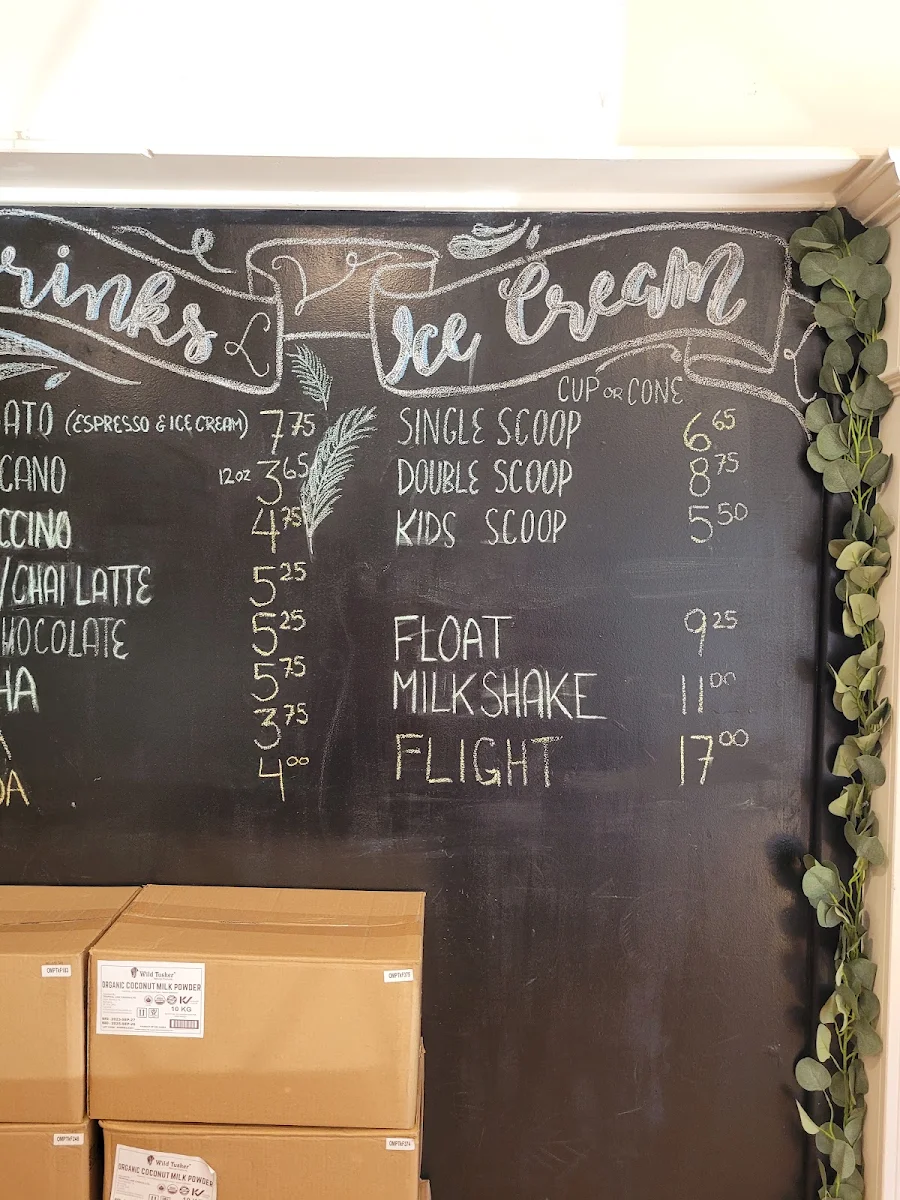 rinks
ATO (ESPRESSO & ICE CREAM) 7 75
CANO 12 OZ 3 65
CCINO 4 75
/CHAI LATTE 5 25
HOCOLATE 5 25
HA 5 75
3 75
DA 4 00
Ice Cream
CUP OR CONE
SINGLE SCOOP 6 65
DOUBLE SCOOP 8 75
KIDS SCOOP 5 50
FLOAT 9 25
MILKSHAKE 11 00
FLIGHT 17 00
Wild Tusker
ORGANIC COCONUT MILK POWDER
10 KG
Wild Tusker
ORGANIC COCONUT MILK POWDER